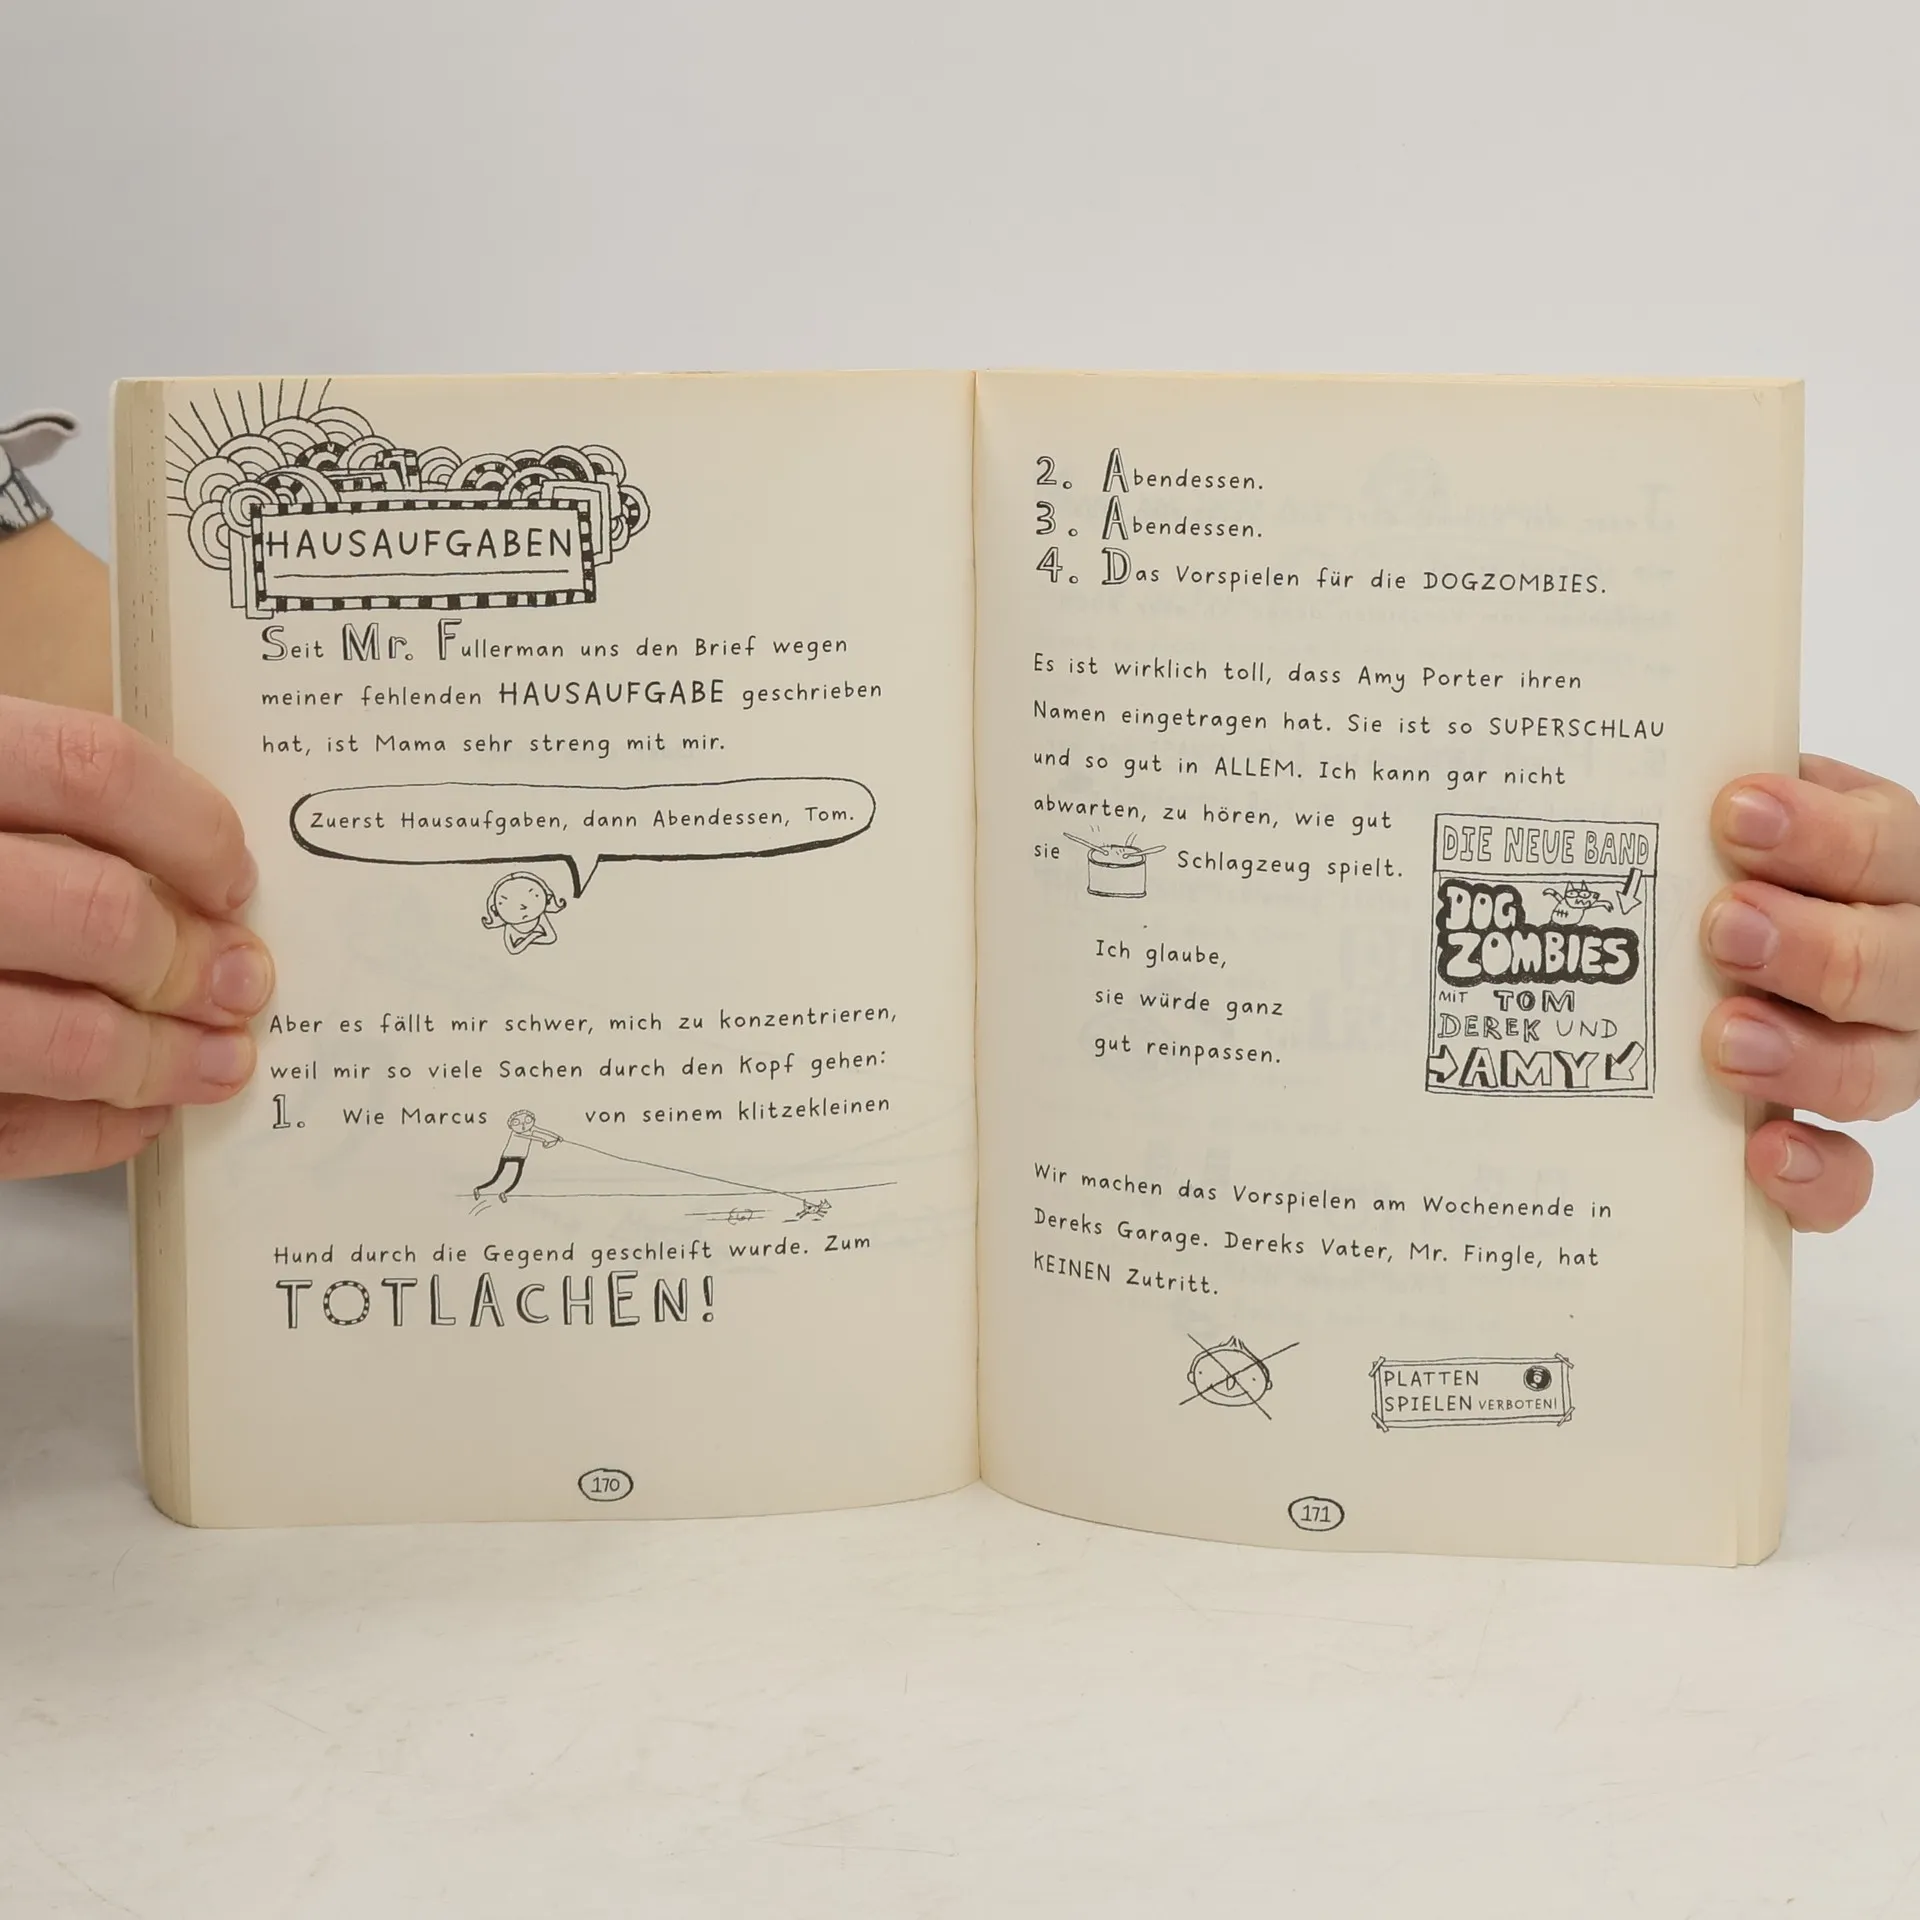 HAUSAUFGABEN
Seit Mr. Fullerman uns den Brief wegen
meiner fehlenden HAUSAUFGABE geschrieben
hat, ist Mama sehr streng mit mir.
Zuerst Hausaufgaben, dann Abendessen, Tom.
Aber es fällt mir schwer, mich zu konzentrieren,
weil mir so viele Sachen durch den Kopf gehen:
1. Wie Marcus von seinem klitzekleinen
Hund durch die Gegend geschleift wurde. Zum
TOTLACHEN!
170
2. Abendessen.
3. Abendessen.
4. Das Vorspielen für die DOGZOMBIES.
Es ist wirklich toll, dass Amy Porter ihren
Namen eingetragen hat. Sie ist so SUPERSCHLAU
und so gut in ALLEM. Ich kann gar nicht
abwarten, zu hören, wie gut
sie Schlagzeug spielt.
Ich glaube,
sie würde ganz
gut reinpassen.
DIE NEUE BAND
DOG
ZOMBIES
MIT TOM
DEREK UND
AMY
Wir machen das Vorspielen am Wochenende in
Dereks Garage. Dereks Vater, Mr. Fingle, hat
KEINEN Zutritt.
PLATTEN
SPIELEN VERBOTEN!
171